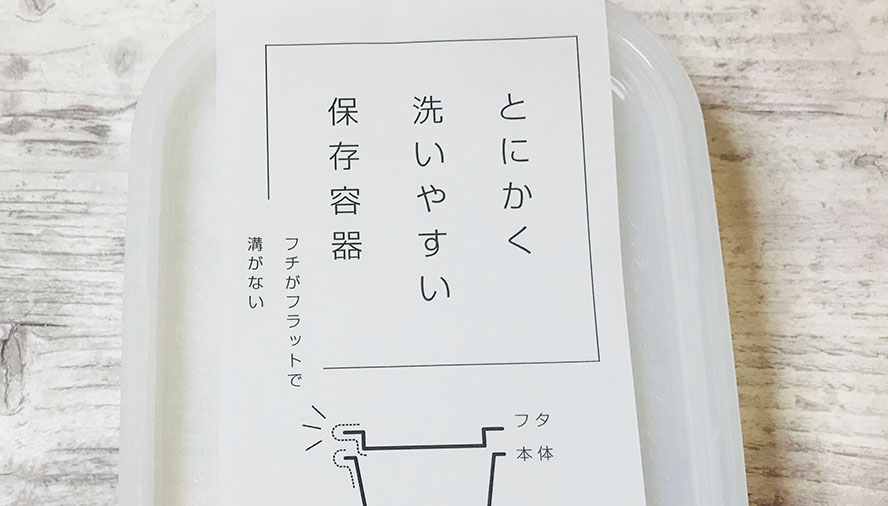 とにかく
洗いやすい
保存容器
フチがフラットで
溝がない
フタ
本体